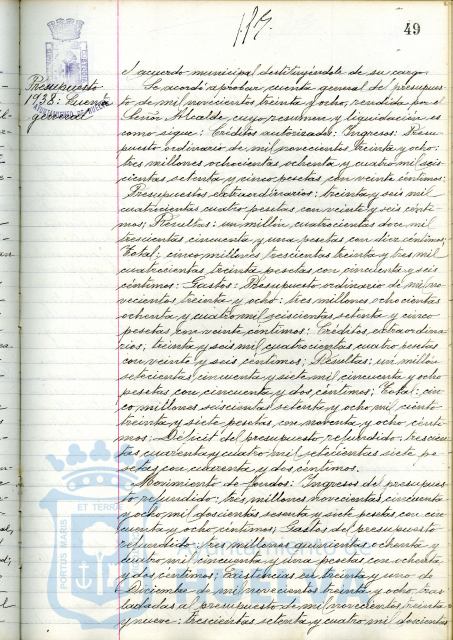 49
Presupuesto
1938: Cuenta
general.
el acuerdo municipal destituyéndole de su cargo.
Se acordó aprobar, cuenta general del presupues-
to de mil novecientos treinta y ocho, rendida por el
Señor Alcalde, cuyo resúmen y liquidación es
como sigue: Créditos autorizados: Ingresos: Presu-
puesto ordinario de mil novecientos treinta y ocho:
tres millones ochocientos ochenta y cuatro mil seis-
cientas setenta y cinco pesetas con veinte céntimos:
Presupuestos extraordinarios: treinta y seis mil
cuatrocientas cuatro pesetas con veinte y seis cénti-
mos; Resultas: un millón cuatrocientas doce mil
trescientas cincuenta y una pesetas con diez céntimos;
Total: cinco millones trescientas treinta y tres mil
cuatrocientas treinta pesetas con cincuenta y seis
céntimos: Gastos: Presupuesto ordinario de mil no-
vecientos treinta y ocho: tres millones ochocientas
ochenta y cuatro mil seiscientas setenta y cinco
pesetas con veinte céntimos: Créditos extraordina-
rios; treinta y seis mil cuatrocientas cuatro pesetas
con veinte y seis céntimos; Resultas: un millón
setecientas cincuenta y siete mil cincuenta y ocho
pesetas con cincuenta y dos céntimos; Total: cin-
co millones seiscientas setenta y ocho mil ciento
treinta y siete pesetas con noventa y ocho cénti-
mos: Déficit del presupuesto refundido: trescien-
tas cuarenta y cuatro mil setecientas siete pe-
setas con cuarenta y dos céntimos.
Movimiento de fondos: Ingresos del presupues-
to refundido: tres millones novecientas cincuenta
y ocho mil doscientas sesenta y siete pesetas con cin-
cuenta y ocho céntimos; Gastos del presupuesto
refundido: tres millones quinientas ochenta y
cuatro mil cincuenta y una pesetas con ochenta
y dos céntimos; Existencias en treinta y uno de
Diciembre de mil novecientos treinta y ocho, tras-
ladadas al presupuesto de mil novecientos treinta
y nueve: trescientas setenta y cuatro mil doscientas
PORTUS MARIS ET TERRE
Ayuntamiento de
HUELVA